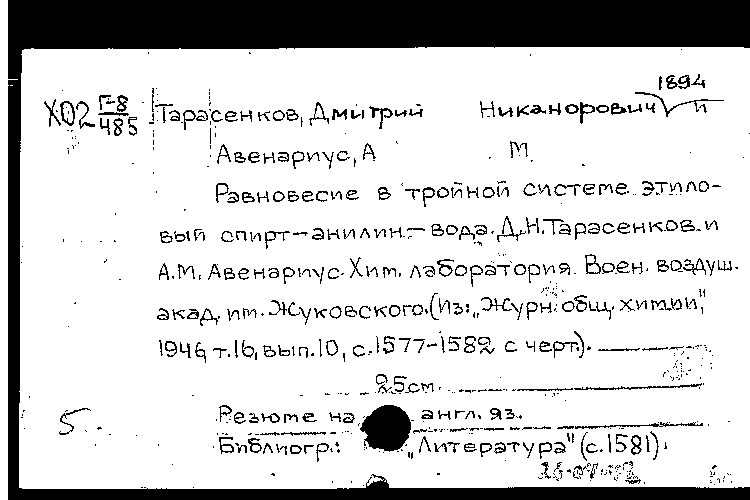 1894
Х02 Г-8/485 Тарасенков, Дмитрий Никанорович и
Авенариус, А М.
Равновесие в тройной системе этило-
вый спирт-анилин-вода. Д.Н.Тарасенков и
А.М. Авенариус. Хим. лаборатория Воен. воздуш.
акад. им. Жуковского. (Из: „Журн. общ. химии",
1946, т.16, вып.10, с.1577-1582 с черт.).
25см.
5. Резюме на англ. яз.
Библиогр.: „Литература" (с.1581).